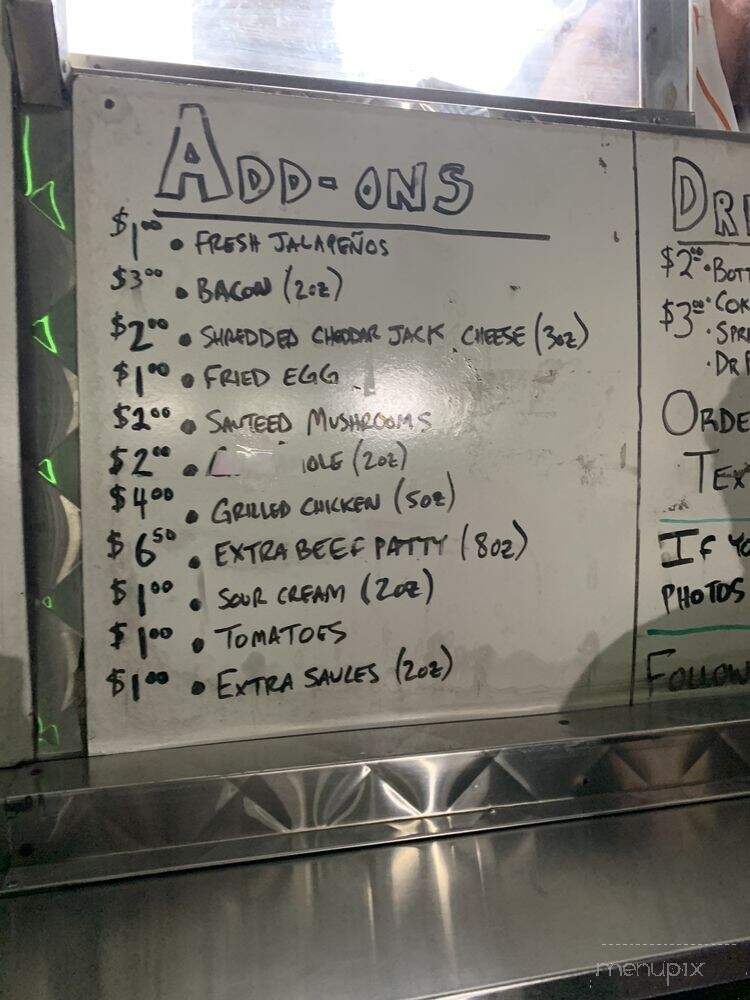 ADD-ONS
$1.00 • FRESH JALAPEÑOS
$3.00 • BACON (2oz)
$2.00 • SHREDDED CHEDDAR JACK CHEESE (3oz)
$1.00 • FRIED EGG
$2.00 • SAUTEED MUSHROOMS
$2.00 • (2oz)
$4.00 • GRILLED CHICKEN (5oz)
$6.50 • EXTRA BEEF PATTY (8oz)
$1.00 • SOUR CREAM (2oz)
$1.00 • TOMATOES
$1.00 • EXTRA SAUCES (2oz)
$2.00 •
$3.00 •
•
•
IF
PHOTOS
FOLLOW
menupix